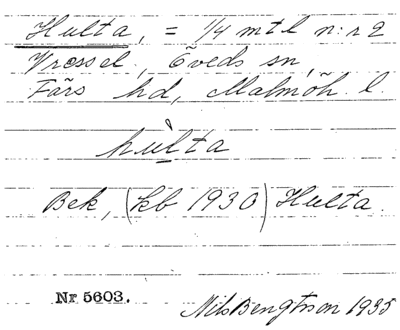 Hulta, = 1/4 mtl n:r 2
Vressel, Öveds sn,
Färs hd, Malmöh. l.
hùlta
Bek, (kb 1930) Hulta.
Nr 5603.
Nils Bengtsson 1935